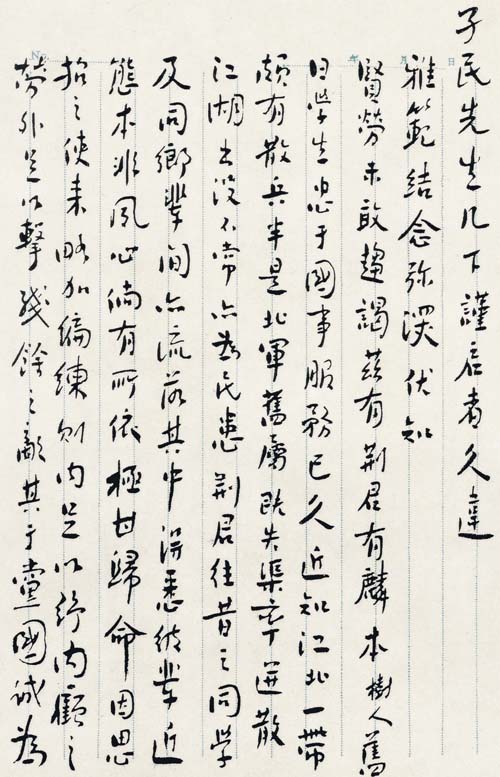 No.
年 月 日
孑民先生几下謹启者久違
雅範結念弥深伏知
賢勞未敢趨謁兹有荆君有麟本樹人舊
日學生忠于國事服務已久近知江北一帶
頗有散兵半是北軍舊屬既失渠率迸散
江湖出没不常亦為民患荆君往昔之同學
及同鄉輩間亦流落其中得悉彼輩近
態本非夙心倘有所依極甘歸命因思
招之使来略加編練則内足以紓内顧之
勞外足以擊殘餘之敵其于黨國誠為